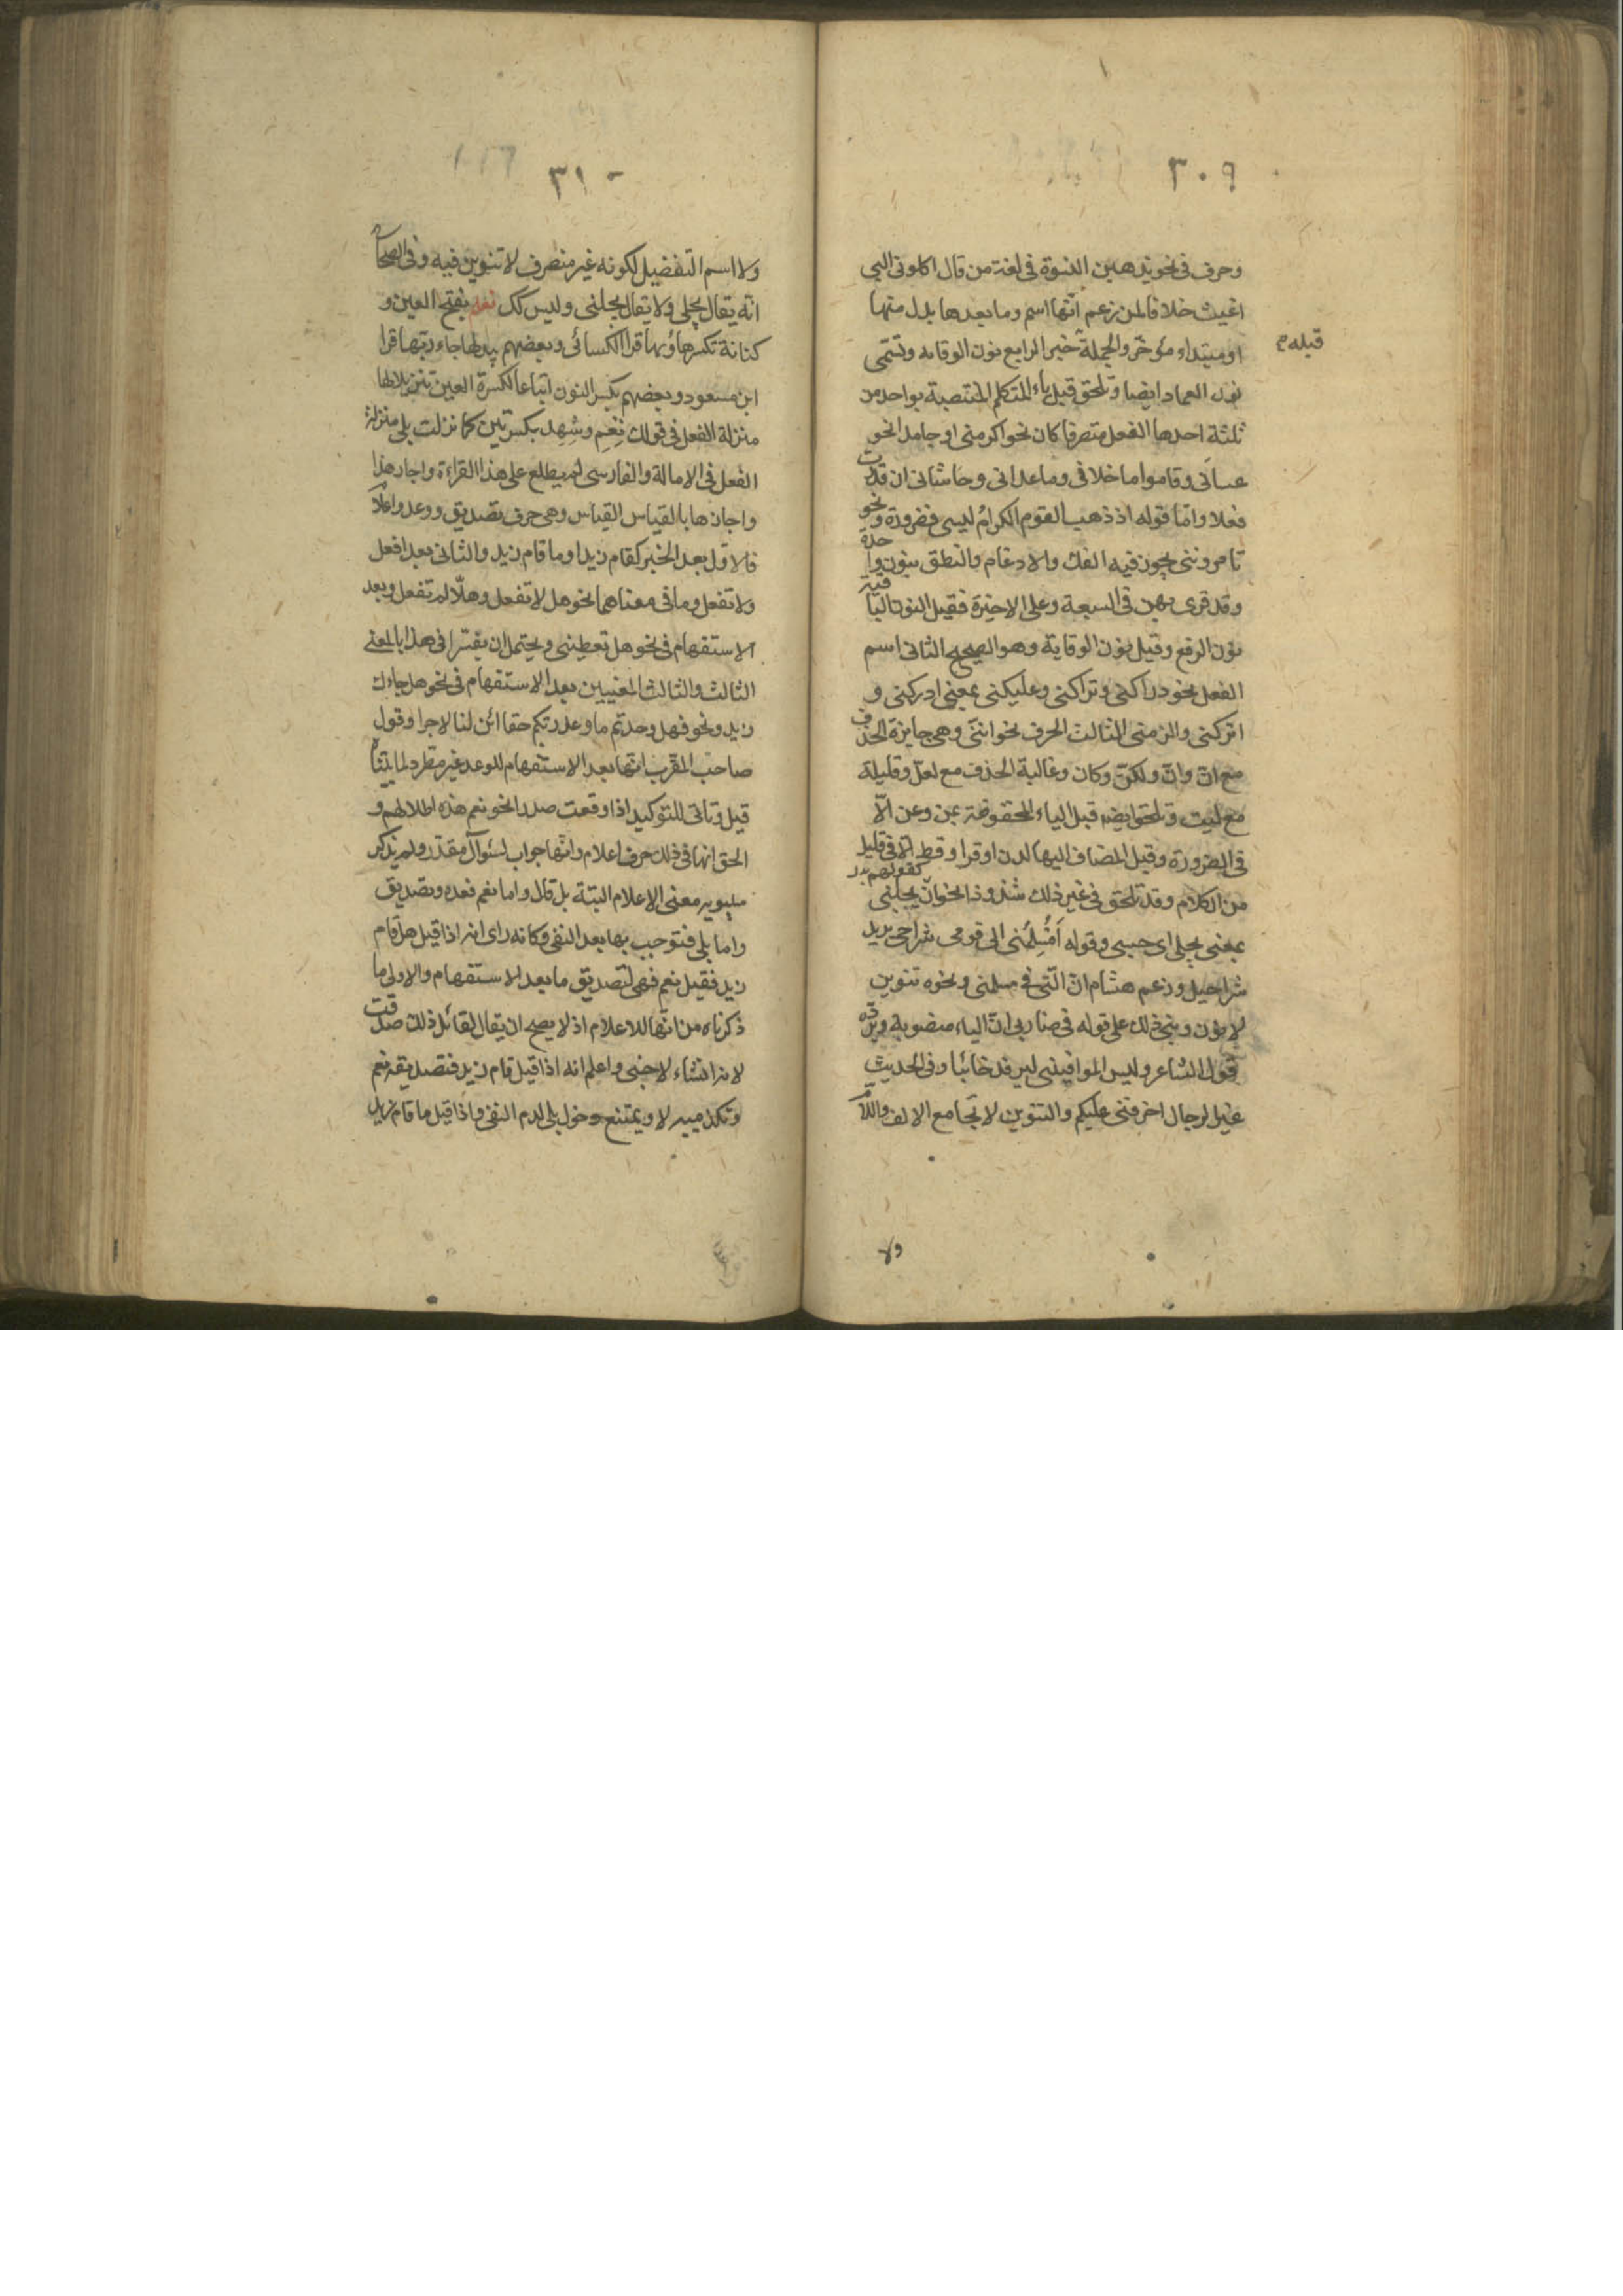 ٣٠٩
وحرف في نحو يذهبن النسوة في لغة من قال اكلوني البـ
اغيث خلافا لمن زعم انّها اسم وما بعدها بدل منها
او مبتداء مؤخّر والجملة خبر الرابع نون الوقاية وتسمّى
قبله م
نون العماد ايضا وتلحق قبل ياء المتكلم المنتصبة بواحد من
ثلثة احدها الفعل متصرفا كان نحو اكرمني او جامدا نحو
عساني وقاموا ما خلاني وما عداني وحاشاني ان قدّرت
فعلا وامّا قوله اذ ذهب القوم الكرامُ ليسي فضرورة ونحو
تامرونني يجوز فيه الفك والادغام والنطق بنون واحدة
وقد قرئ بهن في السبعة وعلى الاخيرة فقيل النون الباقية
نون الرفع وقيل نون الوقاية وهو الصحيح الثاني اسم
الفعل نحو دراكني وتراكني وعليكني بمعنى ادركني و
اتركني والزمني الثالث الحرف نحو انّني وهي جايزة الحذف
مع انّ وانّ ولكنّ وكان وغالبة الحذف مع لعلّ وقليلة
مع ليت وتلحق ايضا قبل الياء المخفوضة بمن وعن الّا
في الضرورة وقبل المضاف اليها لدن او قد او قط الّا في قليل
من الكلام وقد تلحق في غير ذلك شذوذا نحو
كقولهم
بجلني
بمعنى بجلي اى حسبي وقوله أَمُسْلِمُني الى قومي شراحي يريد
شراحيل وزعم هشام انّ الّتي في مسلمني ونحوه تنوين
لا نون وبنى ذلك على قوله في ضاربي انّ الياء منصوبة ويردّه
قول الشاعر وليس الموافيني ليرفد خائبا وفي الحديث
غير الدجال اخوفني عليكم والتنوين لا تجامع الالف واللام
ولا
٣١٠
ولا اسم التفضيل لكونه غير منصرف لا تنوين فيه وفي الصحاح
انّه يقال بجلي ولا يقال بجلني وليس كك نعم بفتح العين و
كنانة تكسرها وبها قرا الكسائي وبعضهم يبدلها حاء وبها قرا
ابن مسعود وبعضهم بكسر النون اتباعا لكسرة العين تنزيلا لها
منزلة الفعل في قولك نِعِم وشِهِد بكسرتين كما نزلت بلى منزلة
الفعل في الامالة والفارسي لم يطلع على هذا القراءة واجاز هذا
واجازها بالقياس القياس وهي حرف تصديق ووعد واعلام
فالاوّل بعد الخبر كقام زيد او ما قام زيد والثاني بعد افعل
ولا تفعل وما في معناهما نحو هل لا تفعل وهلّا لم تفعل وبعد
الاستفهام في نحو هل تعطيني ويحتمل ان يفسّر في هذا بالمعنى
الثالث والثالث المغيبين بعد الاستفهام في نحو هل جاءك
زيد ونحو فهل وجدتم ما وعد ربّكم حقا ائن لنا لاجرا وقول
صاحب المقرّب انّها بعد الاستفهام للوعد غير مطّرد لما بيّنّا
قيل وتاتي للتوكيد اذا وقعت صدرا نحو نعم هذه اطلالهم و
الحق انها في ذلك حرف اعلام وانّها جواب لسؤال مقدّر ولم يذكر
سيبويه معنى الاعلام البتة بل قال واما نعم فعدة وتصديق
واما بلى فتوجب بها بعد النفي وكانه راى انه اذا قيل هل قام
زيد فقيل نعم فهي لتصديق ما بعد الاستفهام والاولى ما
ذكرناه من انّها للاعلام اذ لا يصح ان يقال لقائل ذلك صدقت
لانه انشاء لا خبر واعلم انه اذا قيل قام زيد فتصديقه نعم
وتكذيبه لا ويمتنع دخول بلى لعدم النفي واذا قيل ما قام زيد